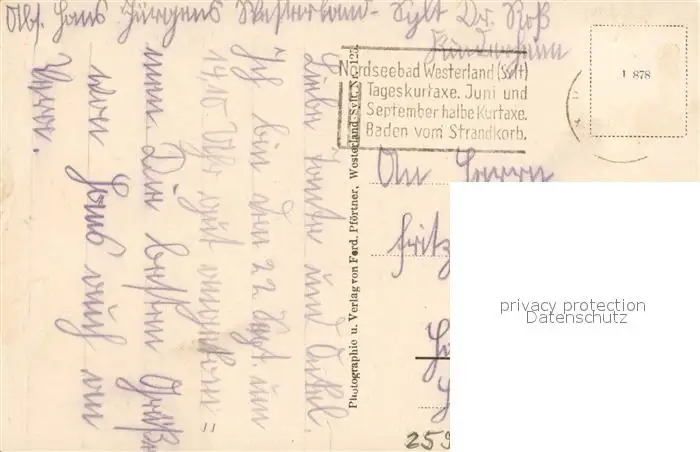 Abs. Hans Jürgens Westerland-Sylt Dr. Roß
Kinderheim
Nordseebad Westerland (Sylt)
Tageskurtaxe. Juni und
September halbe Kurtaxe.
Baden vom Strandkorb.
1 878
Liebe Tante und Onkel
Ich bin den 22 Sept. um
14,10 Uhr gut
nun. Die besten Grüße
von
Photographie u. Verlag von Ferd. Pförtner, Westerland-Sylt, Nr. 125.
An Herrn
Fritz
259
11
privacy protection
Datenschutz